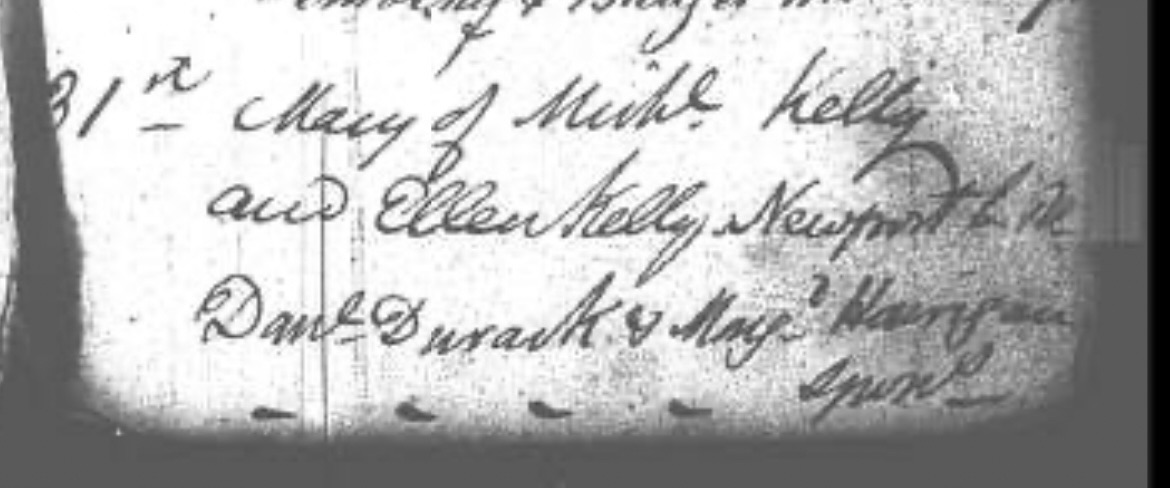 & Bridget
31st Mary of Michl. Kelly
and Ellen Kelly Newport
Danl. Durack & Marg. Hanrigan
Spons